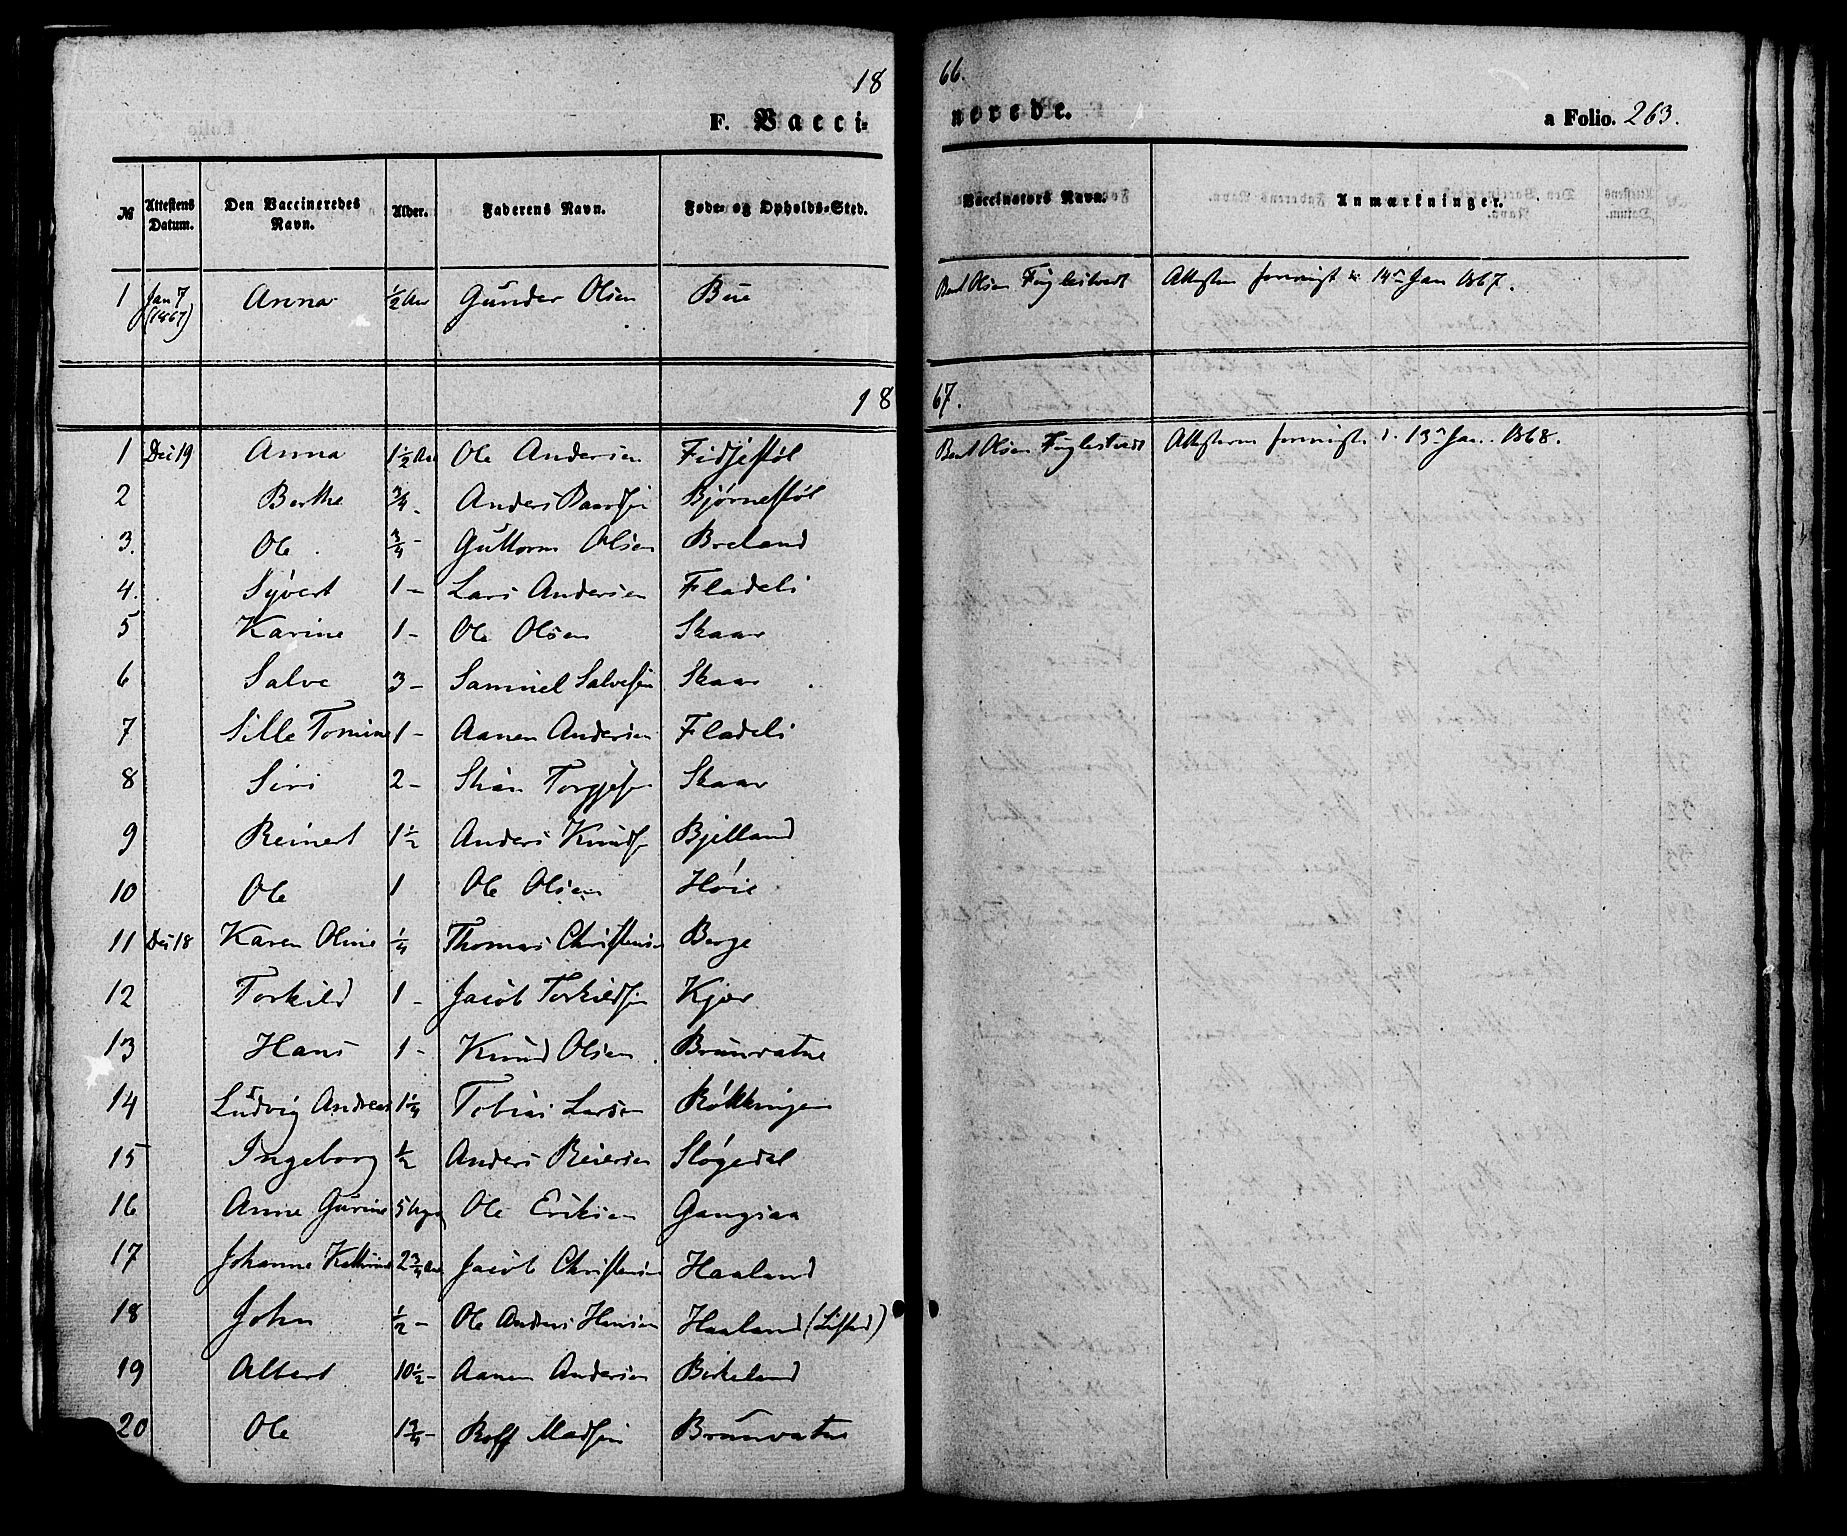 18 66.
F. Vacci- nerede. a Folio. 263.
№ Attestens Datum. Den Vaccineredes Navn. Alder. Faderens Navn. Føde- og Opholds-Sted. Vaccinators Navn. Anmærkninger.
1 Jan 7 (1867) Anna ½ Aar Gunder Olsen Bue Bent Olsen Fuglestvedt Attesten 14 Jan 1867.
18 67.
1 Dec 19 Anna 1½ Aar Ole Andersen Fidjestøl Bent Olsen Fuglestvedt Attesterne 13 Jan. 1868.
2 Berthe ¾ - Anders Baardsen Bjørnestøl
3. Ole ¾ - Guttorm Olsen Breland
4. Syvert 1 - Lars Andersen Fladeli
5 Karine 1 - Ole Olsen Skaar
6 Salve 3 - Samuel Salvesen Skaar
7 Sille Tomine 1 - Aanen Andersen Fladeli
8 Siri 2 - Torgjesen Skaar
9 Reinert 1½ Anders Knudsen Bjelland
10 Ole 1 Ole Olsen Høie
11 Dec 18 Karen Oline ¼ Thomas Christensen Berge
12 Torkild 1 - Jacob Torkildsen Kjær
13 Hans 1 - Knud Olsen Brunvatne
14 Ludvig Andreas 1¼ Tobias Larsen
15 Ingeborg ½ Anders Reiersen Sløgedal
16 Anne Gurine 5 Uger Ole Eriksen Gangsaa
17 Johanne Kathrine 2¾ Aar Jacob Christensen Haaland
18 John ½ - Ole Andreas Hansen Haaland
19 Albert 10½ - Aanen Andersen Birkeland
20 Ole 1¾ - Rolf Madsen Brunvatne